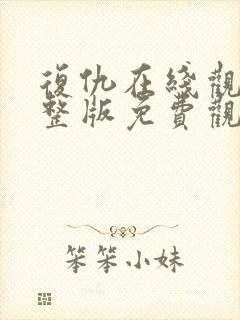 復仇在綫觀
整版免費觀
笨笨小妹